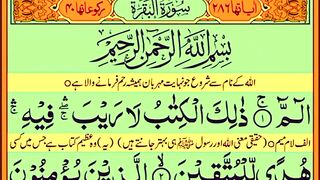 رکوعاتها ۴۰ سُوْرَةُ الْبَقَرَةِ اٰیاتها ۲۸۶
بِسْمِ اللّٰهِ الرَّحْمٰنِ الرَّحِیْمِ
اللہ کے نام سے شروع جو نہایت مہربان ہمیشہ رحم فرمانے والا ہے
الٓمّٓ ۚ﴿۱﴾ ذٰلِكَ الْكِتٰبُ لَا رَیْبَ ۛۚ فِیْهِ ۛۚ
الف لام میم (حقیقی معنی اللہ اور رسول ﷺ ہی بہتر جانتے ہیں) (یہ) وہ عظیم کتاب ہے جس میں کسی
هُدًی لِّلْمُتَّقِیْنَ ۙ﴿۲﴾ الَّذِیْنَ یُؤْمِنُوْنَ